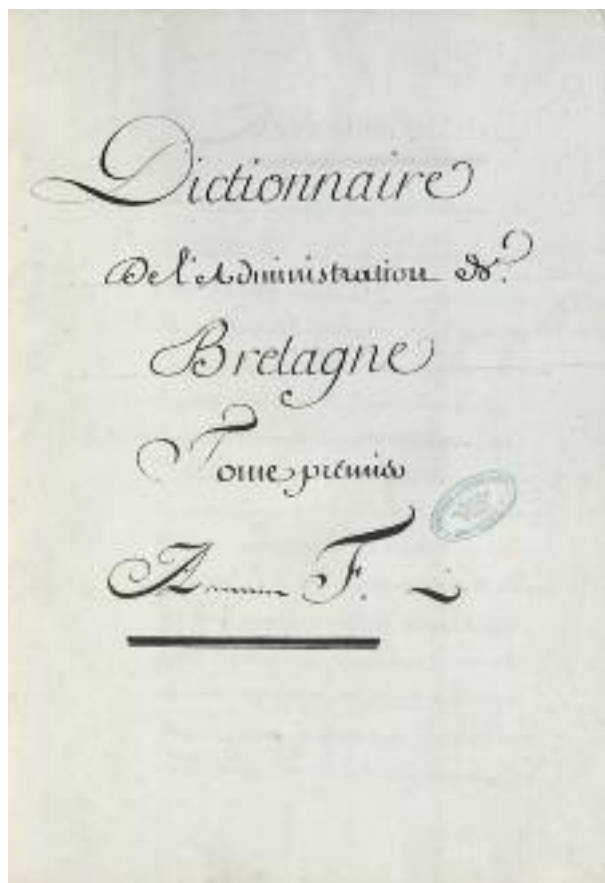 Dictionnaire
De l'Administration de
Bretagne
Tome premier
A F.